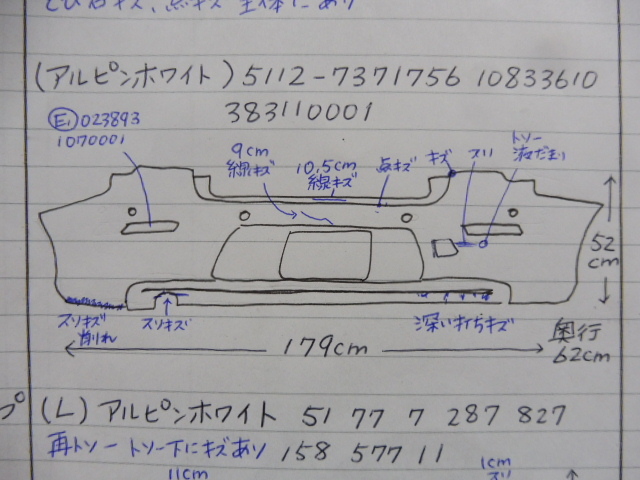 とびらキズ、点キズ 全体にあり
(アルピンホワイト) 5112-7371756 10833610
383110001
E1 023893
1070001
9cm
線キズ
10,5cm
線キズ
点キズ
キズ
スリ
トソー
液だまり
52
cm
スリキズ
削れ
スリキズ
深い打ちキズ
179cm
奥行
62cm
プ (L) アルピンホワイト 51 77 7 287 827
再トソー トソー下にキズあり 158 577 11
11cm
1cm
スリ